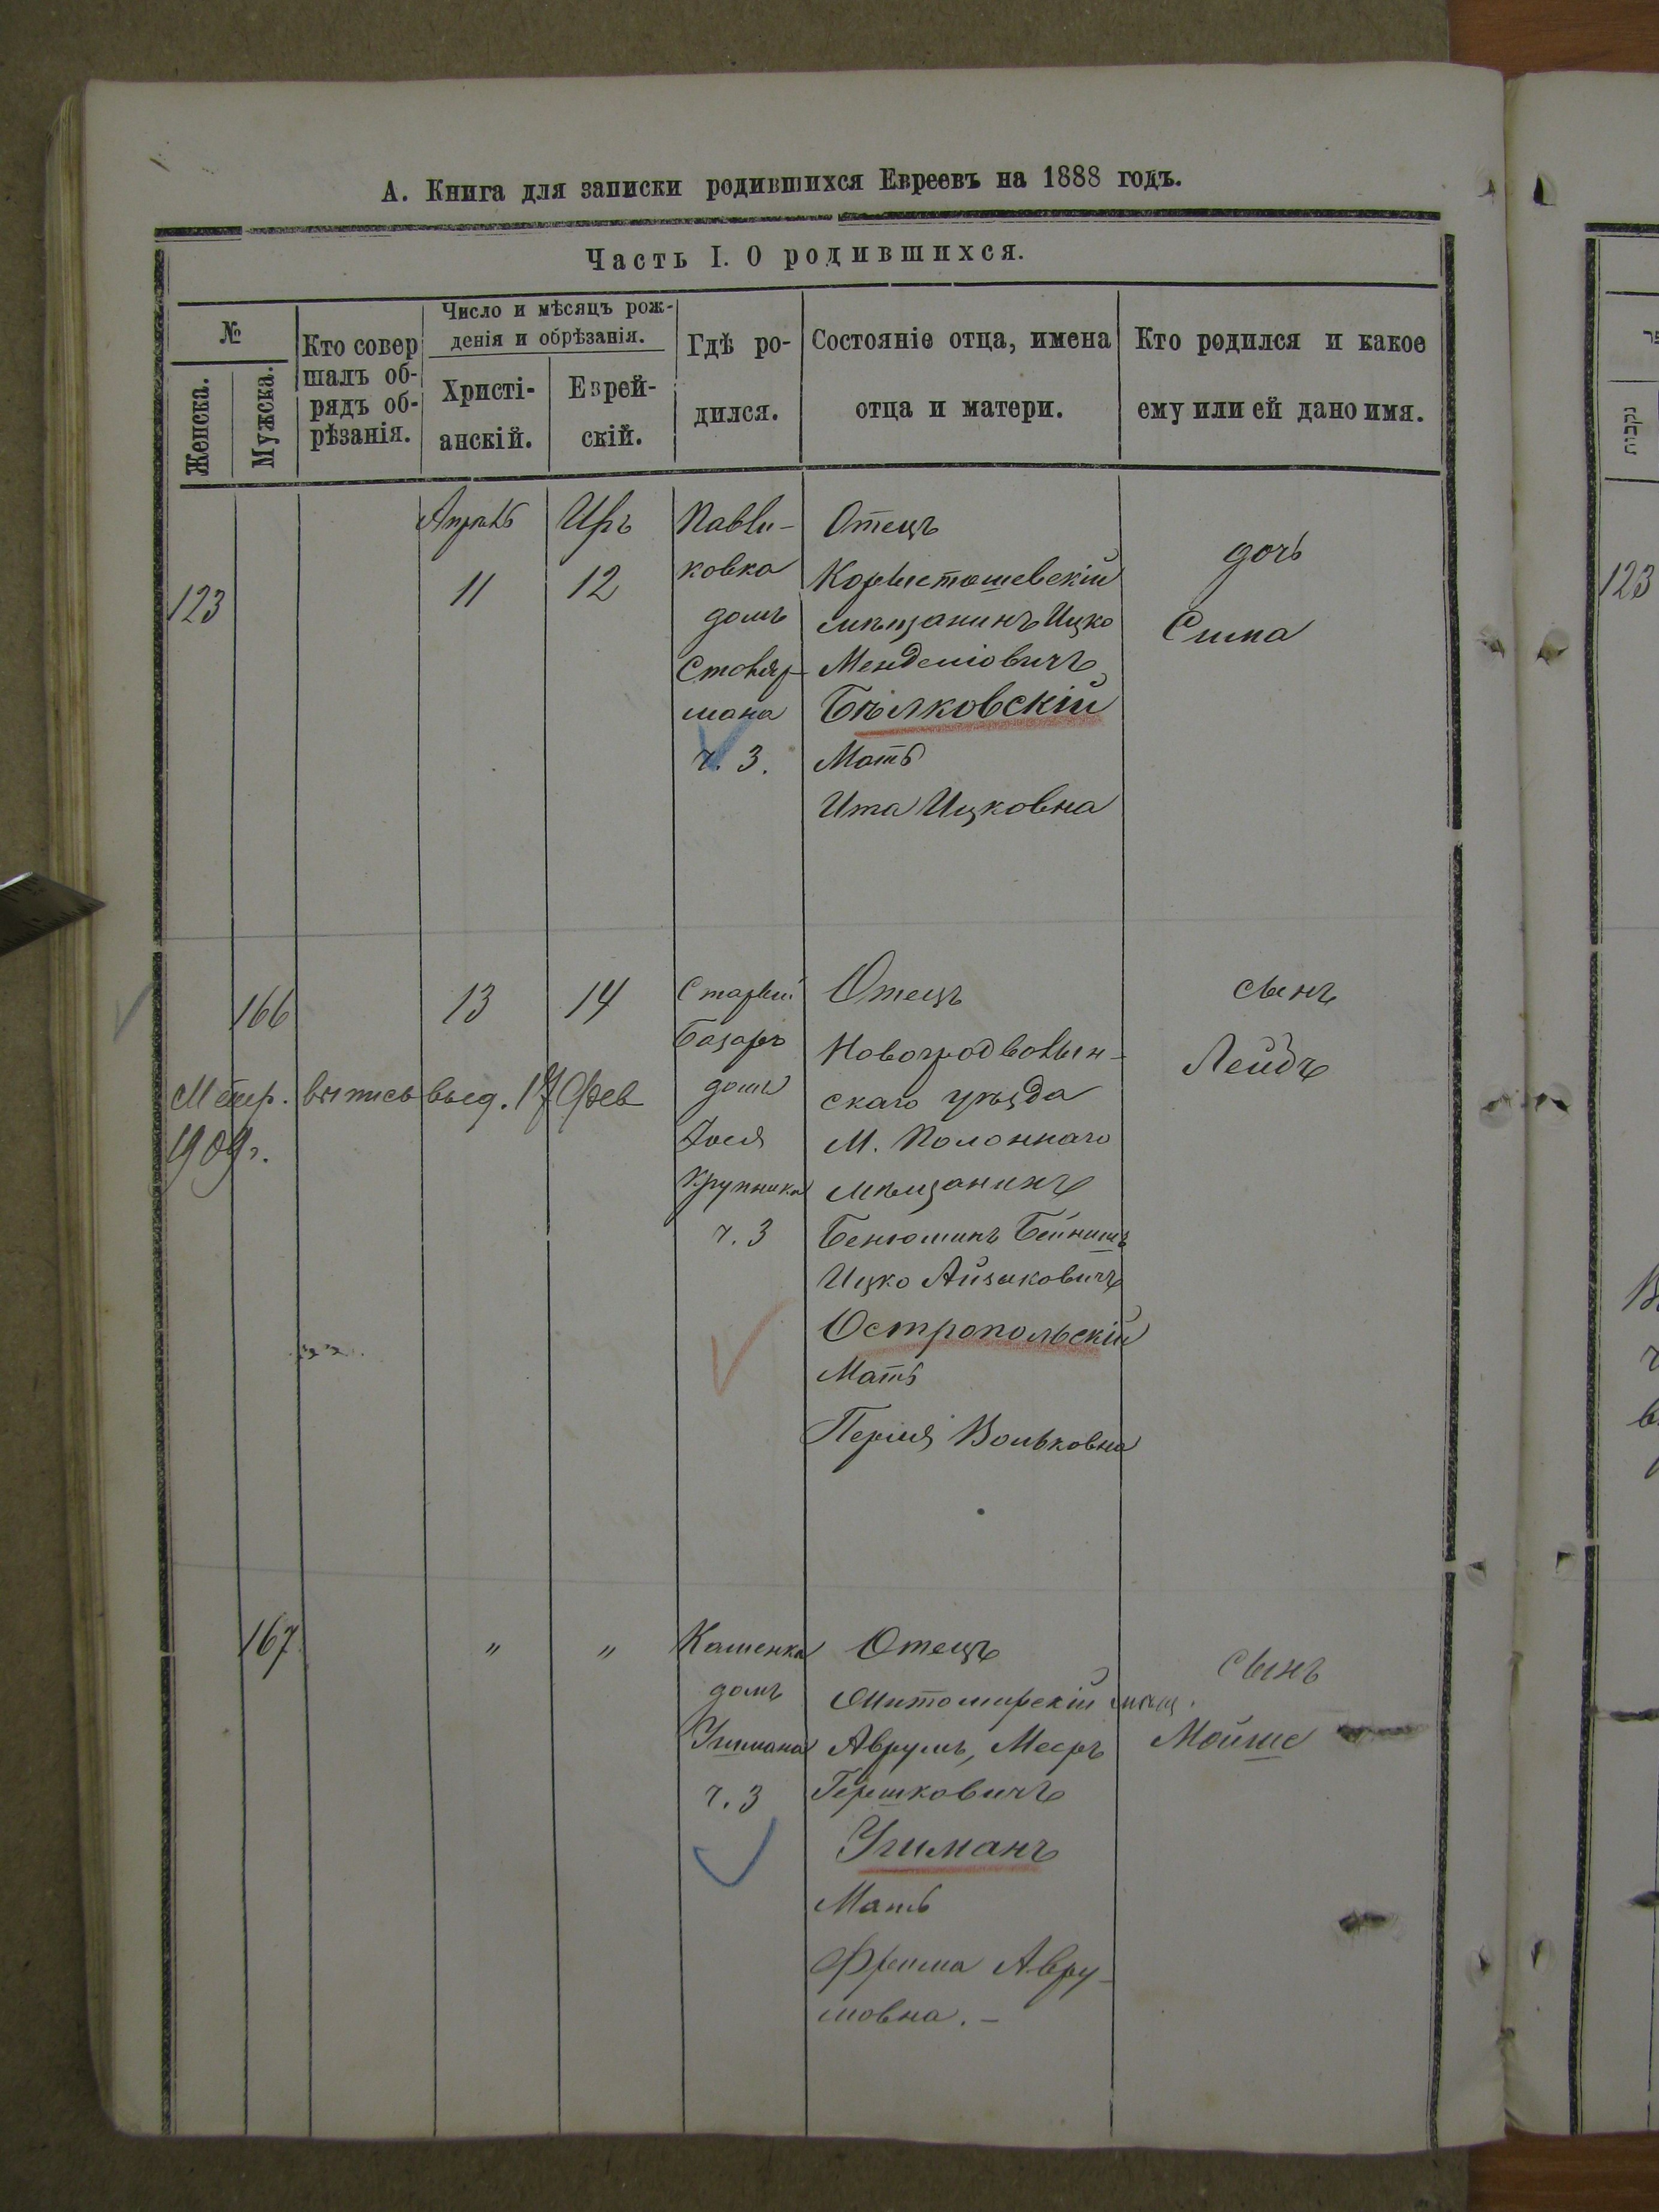 А. Книга для записки родившихся Евреевъ на 1888 годъ.
Часть I. О родившихся.
№
Женска.
Мужска.
Кто совер
шалъ об-
рядъ об-
рѣзанія.
Число и мѣсяцъ рож-
денія и обрѣзанія.
Христі-
анскій.
Еврей-
скій.
Гдѣ ро-
дился.
Состояніе отца, имена
отца и матери.
Кто родился и какое
ему или ей дано имя.
123
Апрѣль
11
Иръ
12
Павли-
ковка
домъ
Столяр-
мана
ч. 3.
Отецъ
Коростышевскій
мѣщанинъ Ицко
Менделіовичъ
Бѣлковскій
Мать
Ита Ицковна
дочь
Сима
123
166
13
14
Метр. выпись выд. 17 Фев
1909 г.
Старый
базаръ
домъ
Крупника
ч. 3
Отецъ
Новоградволын-
скаго уѣзда
М. Полоннаго
мѣщанинъ
Бенюминъ Бейнишъ
Ицко Айзиковичъ
Остропольскій
Мать
Перля Вольковна
сынъ
Лейдъ
167
"
"
Каменка
домъ
Ушмана
ч. 3
Отецъ
Житомирскій мѣщ.
Аврумъ, Мееръ
Гершковичъ
Ушманъ
Мать
Фрима Авру-
мовна. -
сынъ
Мойше
נקבות